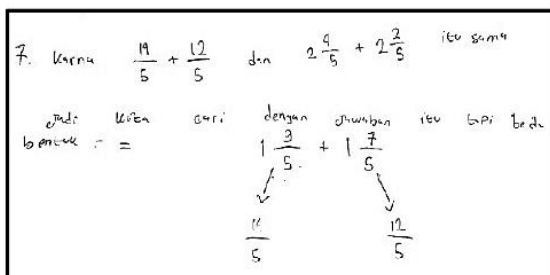 7. Karna 14/5 + 12/5 dan 2 4/5 + 2 2/5 itu sama
Jadi kita cari dengan jawaban itu tapi beda
bentuk = 1 9/5 + 1 7/5
14/5 12/5